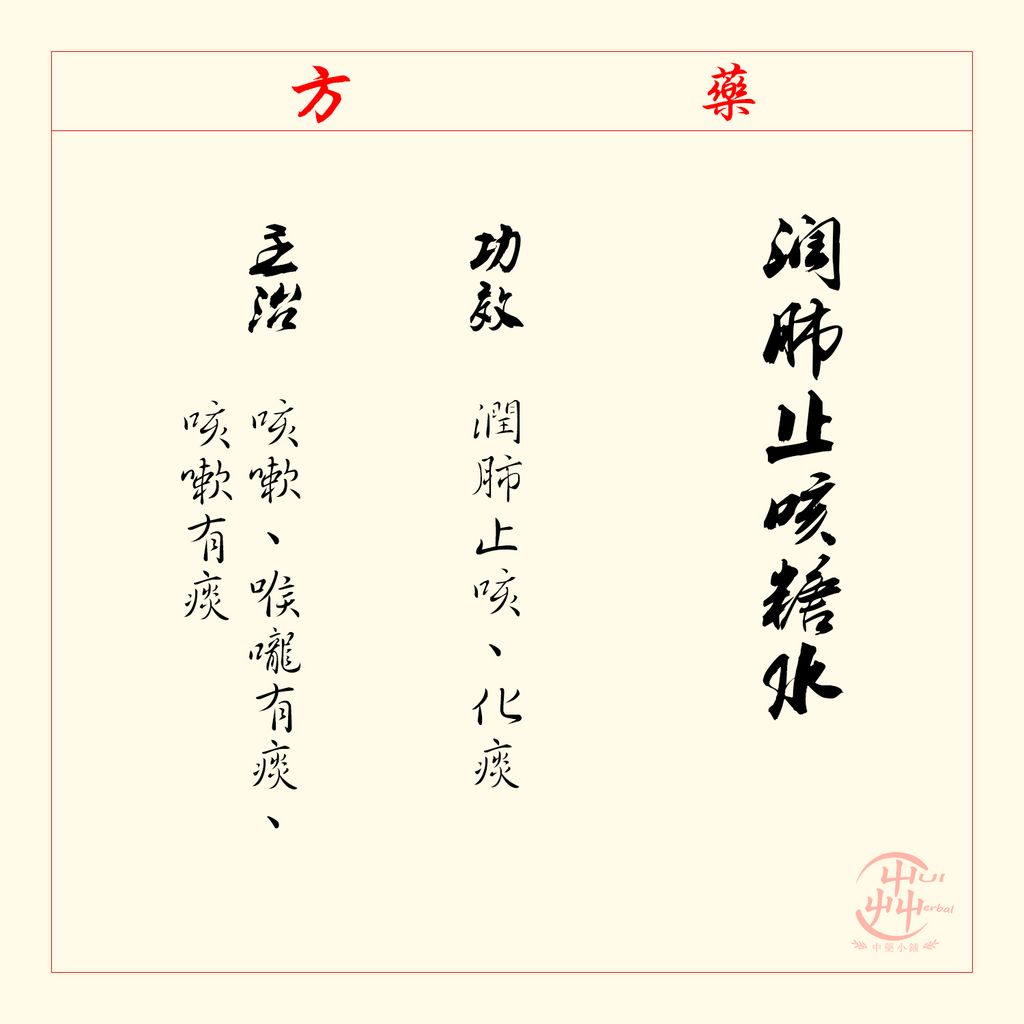 藥方
润肺止咳糖水
功效
潤肺止咳、化痰
主治
咳嗽、喉嚨有痰、
咳嗽有痰
Hui
Herbal
中藥小鋪